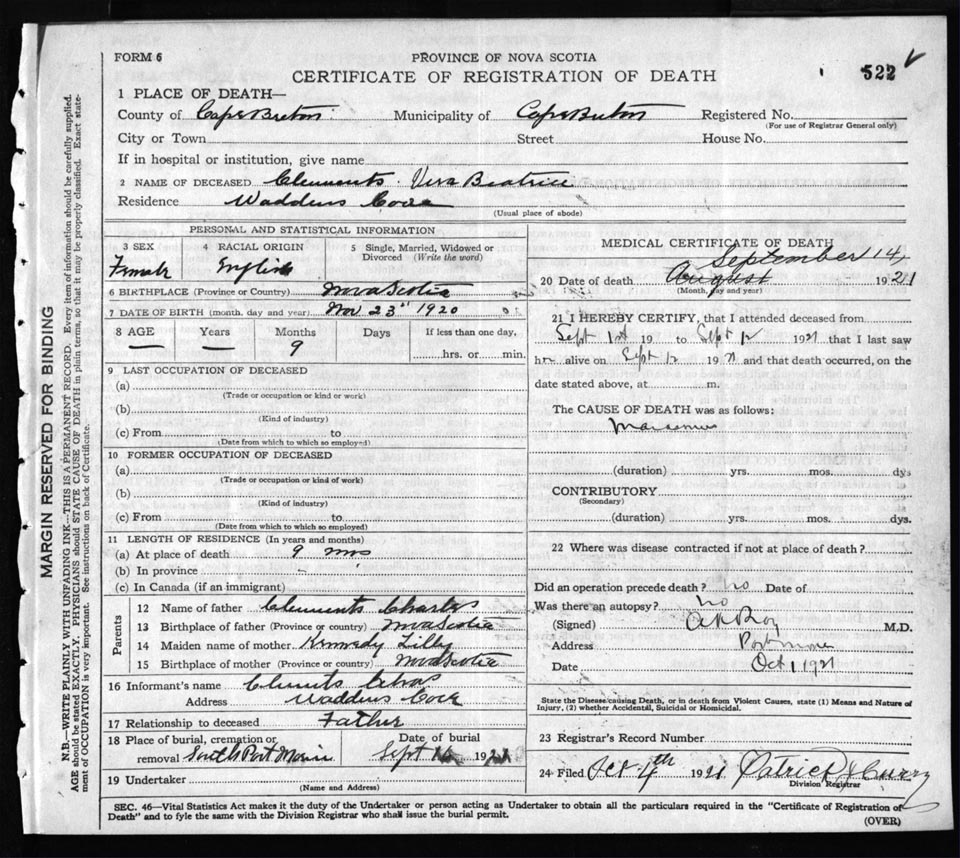 FORM 6
PROVINCE OF NOVA SCOTIA
CERTIFICATE OF REGISTRATION OF DEATH
522
1 PLACE OF DEATH—
County of Cape Breton Municipality of Cape Breton Registered No.
(For use of Registrar General only)
City or Town Street House No.
If in hospital or institution, give name
2 NAME OF DECEASED Clements Vera Beatrice
Residence Waddens Cove
(Usual place of abode)
PERSONAL AND STATISTICAL INFORMATION
3 SEX
Female
4 RACIAL ORIGIN
English
5 Single, Married, Widowed or Divorced (Write the word)
6 BIRTHPLACE (Province or Country) Nova Scotia
7 DATE OF BIRTH (month, day and year) Nov 23rd 1920
8 AGE Years Months Days If less than one day,
— — 9 hrs. or min.
9 LAST OCCUPATION OF DECEASED
(a)
(Trade or occupation or kind or work)
(b)
(Kind of industry)
(c) From to
(Date from which to which so employed)
10 FORMER OCCUPATION OF DECEASED
(a)
(Trade or occupation or kind of work)
(b)
(Kind of industry)
(c) From to
(Date from which to which so employed)
11 LENGTH OF RESIDENCE (In years and months)
(a) At place of death 9 mos
(b) In province
(c) In Canada (if an immigrant)
Parents
12 Name of father Clements Charles
13 Birthplace of father (Province or country) Nova Scotia
14 Maiden name of mother Kennedy Lilly
15 Birthplace of mother (Province or country) Nova Scotia
16 Informant's name Clements Chas
Address Waddens Cove
17 Relationship to deceased Father
18 Place of burial, cremation or removal South Port Morien
Date of burial
Sept 16 1921
19 Undertaker
(Name and Address)
MEDICAL CERTIFICATE OF DEATH
September 14
20 Date of death August 1921
(Month, day and year)
21 I HEREBY CERTIFY, that I attended deceased from
Sept 1st 19 to Sept 12 1921 that I last saw
her alive on Sept 12 1921 and that death occurred, on the
date stated above, at m.
The CAUSE OF DEATH was as follows:
Marasmus
(duration) yrs. mos. dys
CONTRIBUTORY
(Secondary)
(duration) yrs. mos. dys.
22 Where was disease contracted if not at place of death?
Did an operation precede death? no Date of
Was there an autopsy? no
(Signed) M.D.
Address Port Morien
Date Oct 1 1921
State the Disease causing Death, or in death from Violent Causes, state (1) Means and Nature of Injury, (2) whether Accidental, Suicidal or Homicidal.
23 Registrar's Record Number
24 Filed Oct 4th 1921 Patrick J Curry
Division Registrar
SEC. 46—Vital Statistics Act makes it the duty of the Undertaker or person acting as Undertaker to obtain all the particulars required in the "Certificate of Registration of
Death" and to fyle the same with the Division Registrar who shall issue the burial permit.
(OVER)
MARGIN RESERVED FOR BINDING
N.B.—WRITE PLAINLY WITH UNFADING INK—THIS IS A PERMANENT RECORD. Every item of information should be carefully supplied.
AGE should be stated EXACTLY. PHYSICIANS should STATE CAUSE OF DEATH in plain terms, so that it may be properly classified. Exact state-
ment of OCCUPATION is very important. See instructions on back of Certificate.